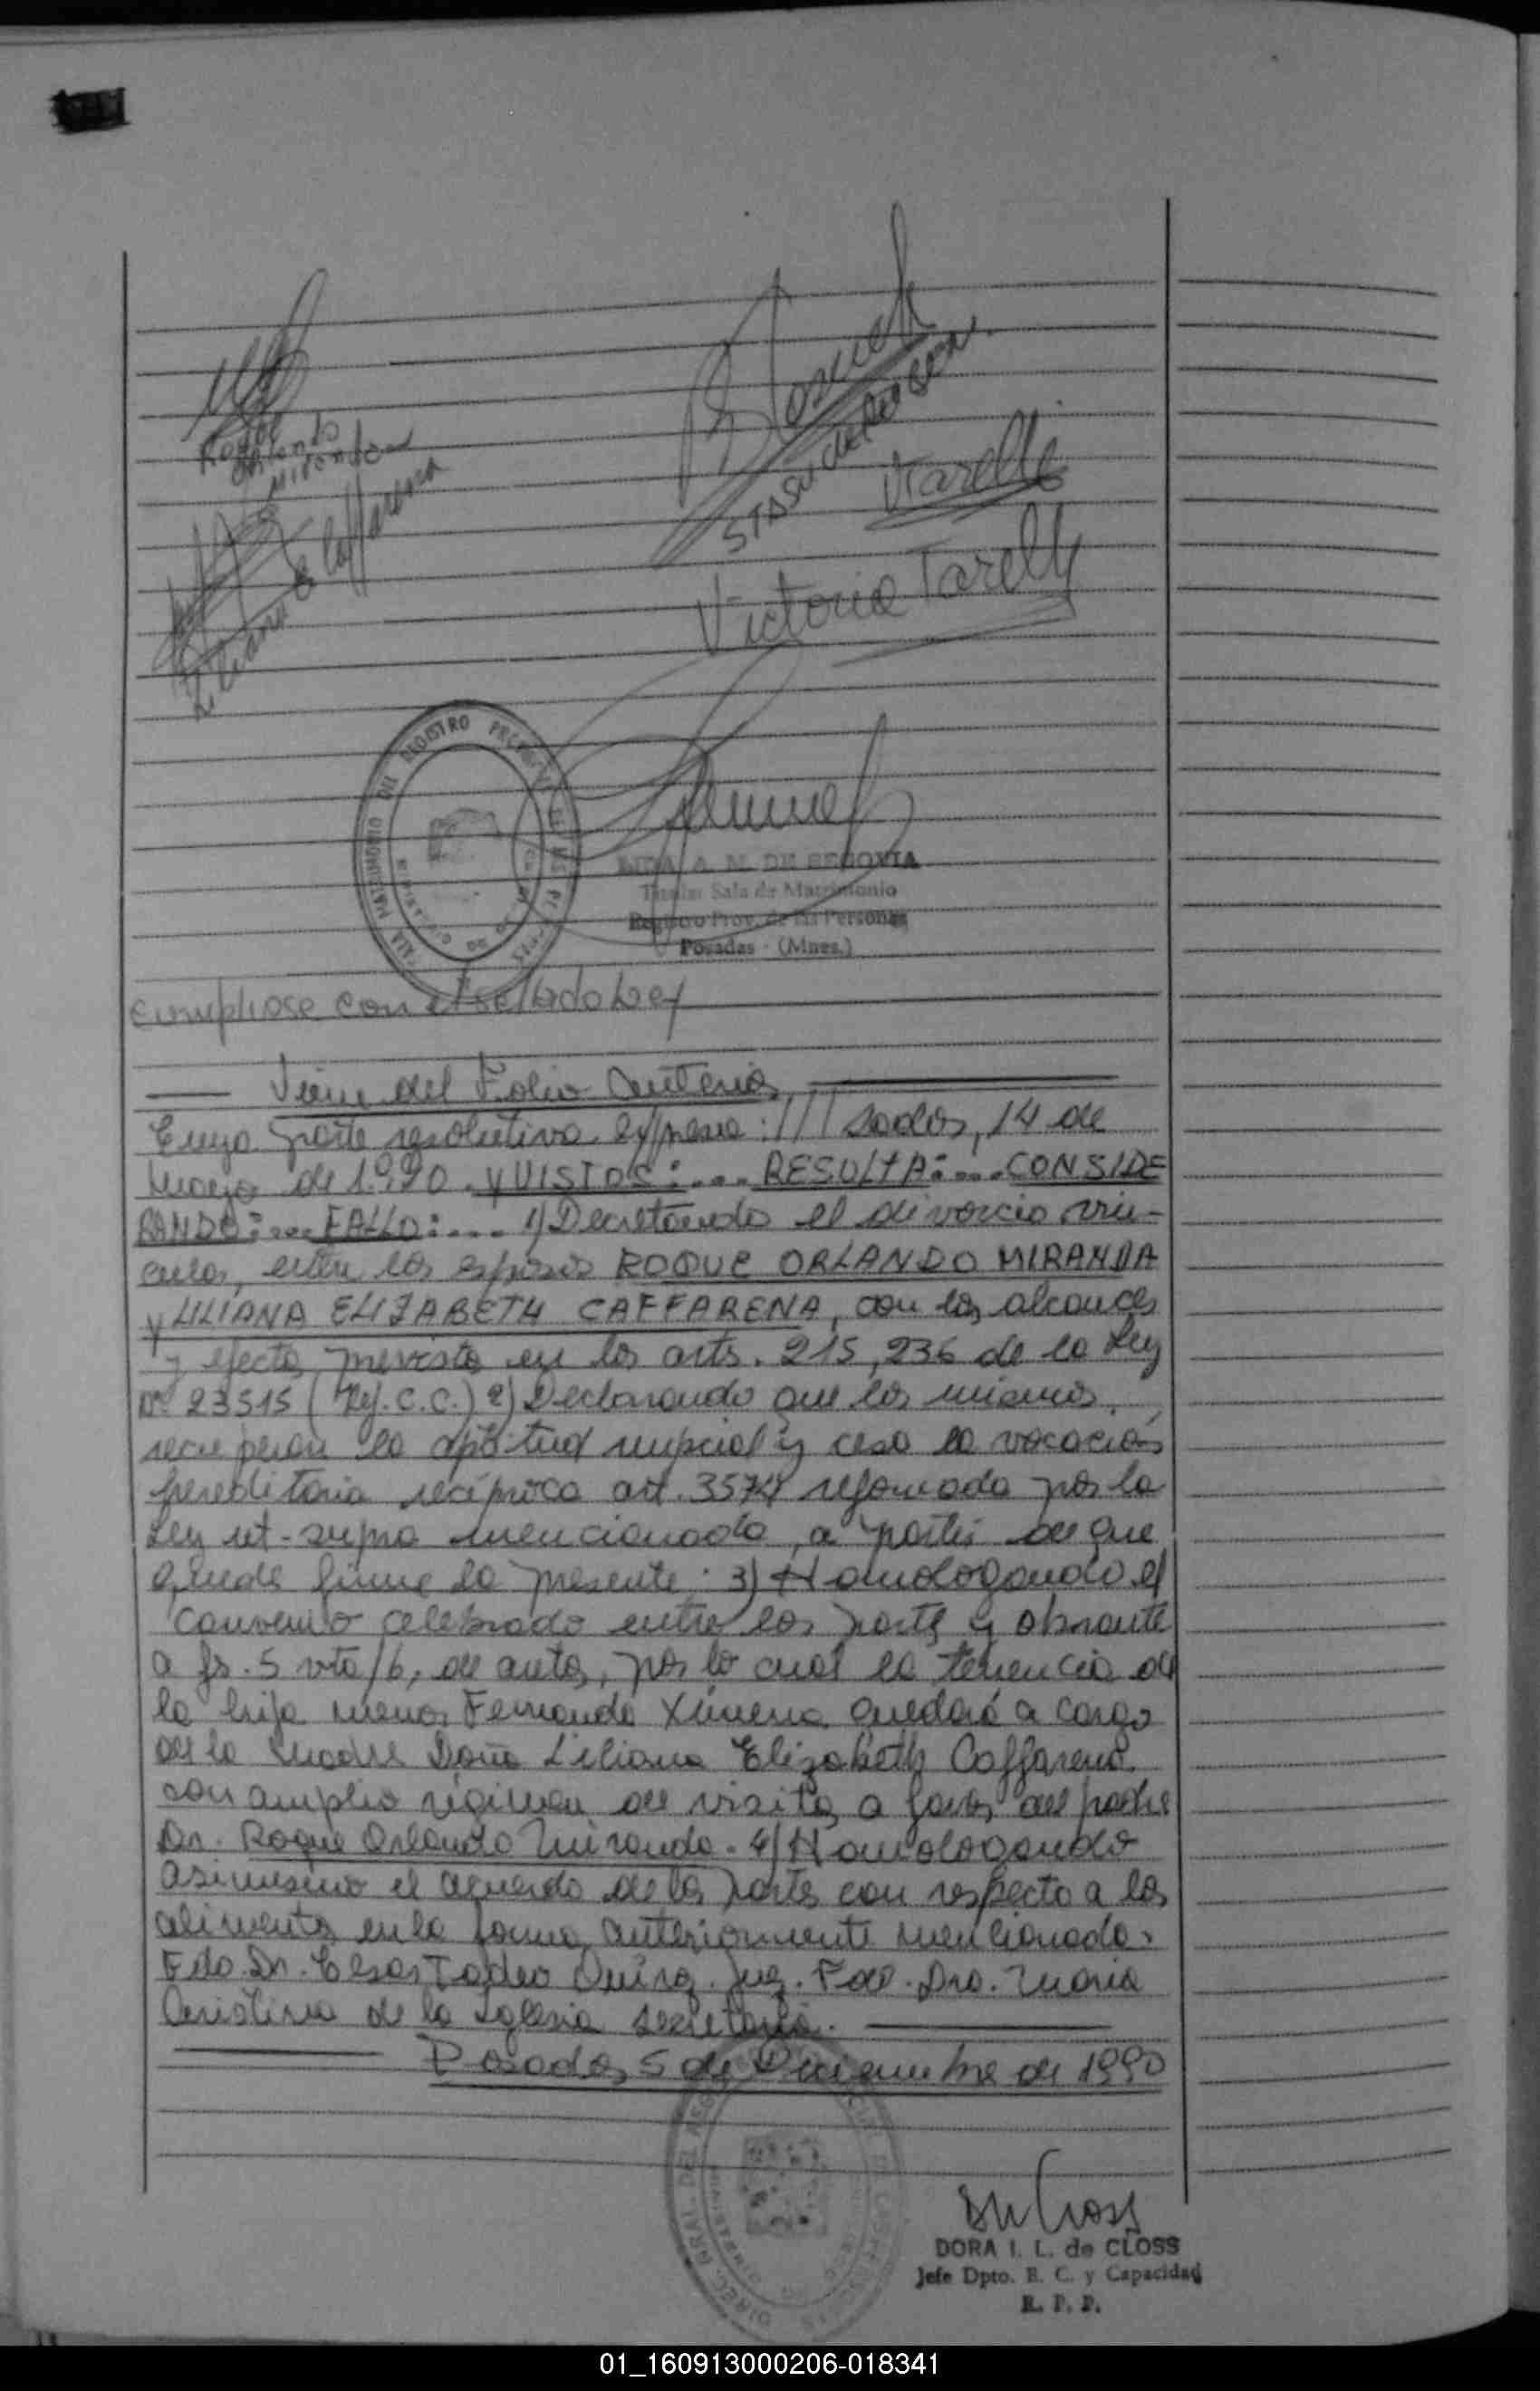 Roque
Orlando
Miranda
Liliana E Caffarena
Tarelli
Victoria Tarelli
REGISTRO
MATRIMONIO DEL
LIDA A. M. DE SEGOVIA
Titular Sala de Matrimonio
Registro Prov. de las Personas
Posadas - (Mnes.)
Cumpliose con el sellado Ley
Viene del Folio Anterior
Cuya parte resolutiva expresa: /// sadas, 14 de
Mayo de 1.990. y VISTOS:.... RESULTA:....CONSIDE
RANDO:....FALLO:.... 1) Decretando el divorcio vin-
cular, entre los esposos ROQUE ORLANDO MIRANDA
y LILIANA ELIZABETH CAFFARENA, con los alcances
y efectos previstos en los arts. 215, 236 de la Ley
Nº 23515 (Ref. C.C.) 2) Declarando que los mismos
recuperan la aptitud nupcial y cesa la vocación
hereditaria recíproca art. 3574 reformado por la
Ley ut-supra mencionada, a partir de que
quede firme la presente. 3) Homologando el
convenio celebrado entre las partes y obrante
a fs. 5 vta/6, de autos, por lo cual la tenencia de
la hija menor Fernanda Ximena quedará a cargo
de la madre Doña Liliana Elizabeth Caffarena
con amplio régimen de visitas a favor del padre
Dn. Roque Orlando Miranda. 4) Homologando
asimismo el acuerdo de las partes con respecto a los
alimentos en la forma anteriormente mencionada.
Fdo. Dr. Cesar Tadeo Juez. Fdo. Dra. Maria
Cristina de la Iglesia secretaria.
Posadas 5 de Diciembre de 1990
DORA I. L. de CLOSS
Jefe Dpto. E. C. y Capacidad
R. P. P.
01_160913000206-018341